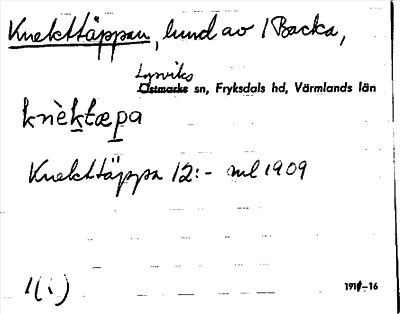 Knekttäppan, lund av 1 Backa,
Lysviks
Östmarks sn, Fryksdals hd, Värmlands län
knèktæpa
Knekttäppa 12:- ml 1909
1(i)
1911-16